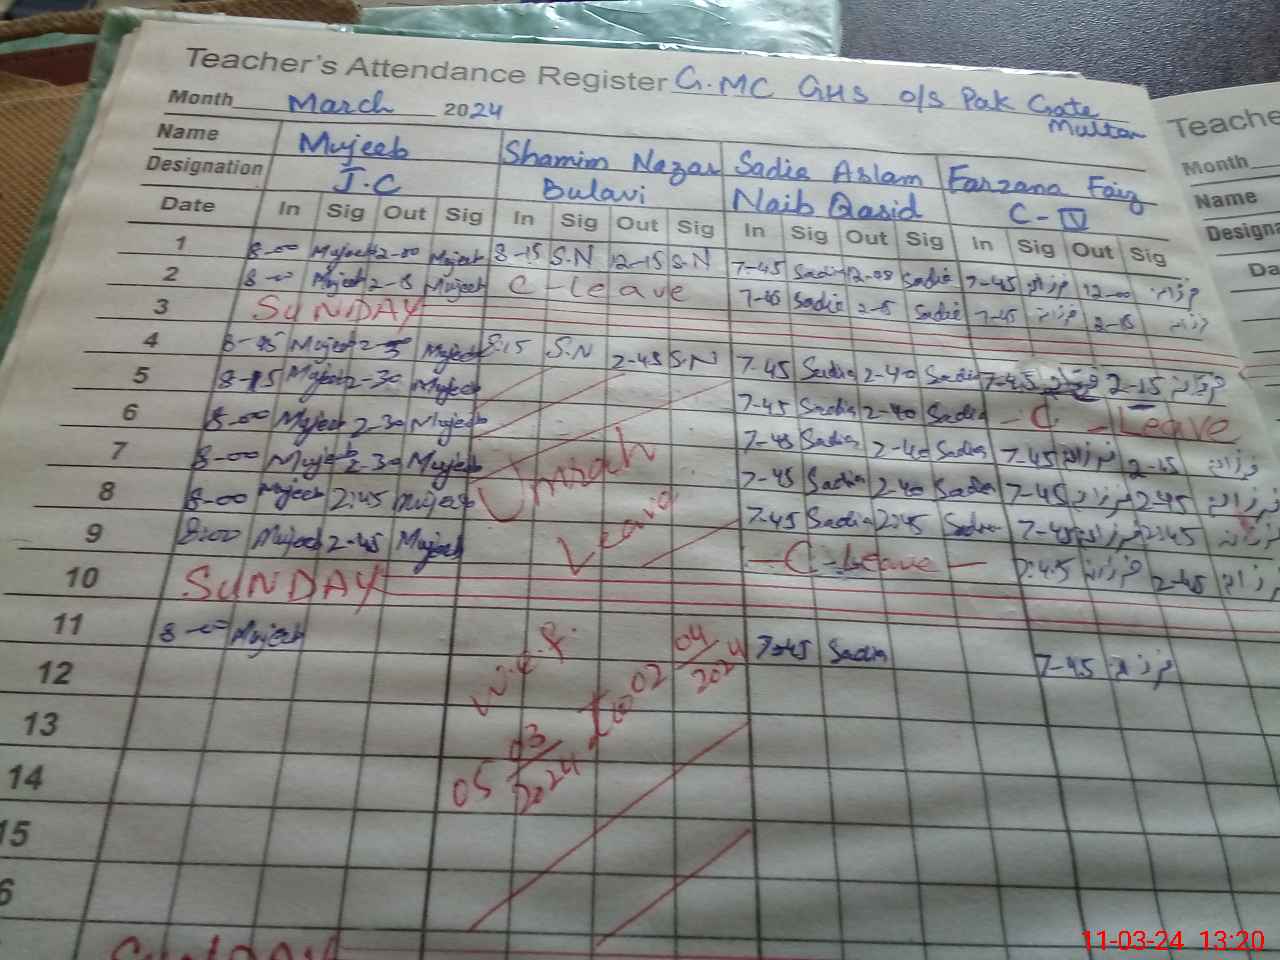 Teacher's Attendance Register G.MC GHS O/S Pak Gate Multan
Month March 2024
Name Mujeeb Shamim Nazar Sadia Aslam Farzana Faiz
Designation J.C Bulavi Naib Qasid C-IV
Date In Sig Out Sig In Sig Out Sig In Sig Out Sig In Sig Out Sig
1 8-00 Mujeeb 12-00 Mujeeb 8-15 S.N 12-15 S.N 7-45 Sadia Sadia 7-45 فرزانہ 12-00 فرزانہ
2 8-00 Mujeeb 2-15 Mujeeb C-leave 7-45 Sadia 2-15 Sadia 7-45 فرزانہ 2-15 فرزانہ
3 SUNDAY
4 Mujeeb Mujeeb 8.15 S.N 2-45 S.N 7-45 Sadia 2-40 Sadia 7-45 2-15 فرزانہ
5 8-15 Mujeeb 2-30 Mujeeb 7-45 Sadia 2-40 Sadia - C - Leave
6 8-00 Mujeeb 2-30 Mujeeb 7-45 Sadia 2-40 Sadia 7-45 فرزانہ 2-15 فرزانہ
7 8-00 Mujeeb 2-30 Mujeeb Umrah 7-45 Sadia 2-40 Sadia 7-45 فرزانہ 2-45 فرزانہ
8 8-00 Mujeeb 2:45 Mujeeb Leave 7-45 Sadia 2:45 Sadia 7-45 فرزانہ 2:45 فرزانہ
9 8:00 Mujeeb 2-45 Mujeeb - C - Leave - 7:45 فرزانہ 2-45 فرزانہ
10 SUNDAY
11 8-00 Mujeeb 7-45 Sadia 7-45 فرزانہ
12 W.e.f.
13 05 03/2024 to 02 04/2024
14
15
6
SUNDAY
Teache
Month
Name
Designa
Da
11-03-24 13:20